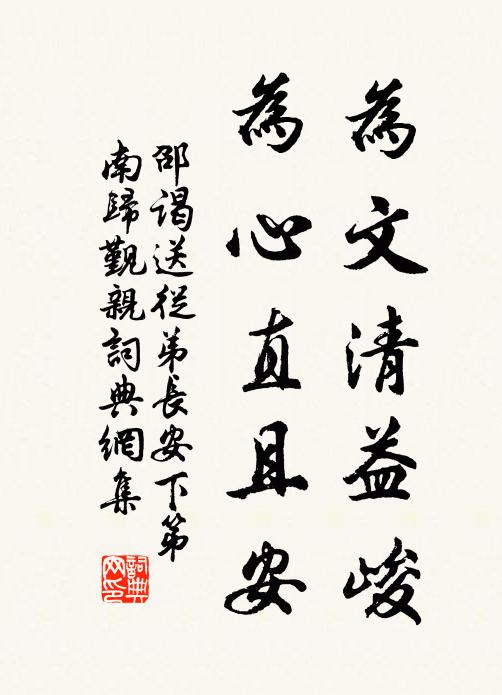 為文清益峻
為心直且安
邵謁送從弟長安下第
南歸覲親詞典網集
詞典網印